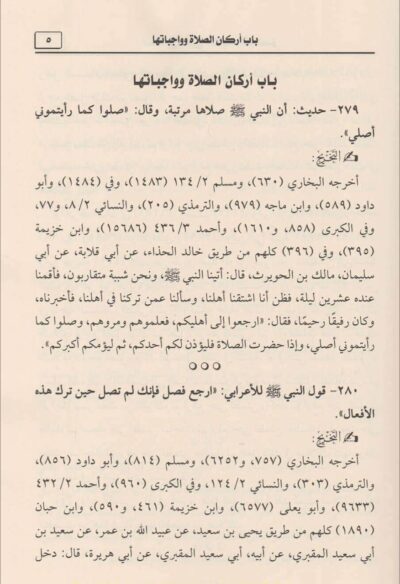 باب أركان الصلاة وواجباتها
٥
باب أركان الصلاة وواجباتها
٢٧٩- حديث: أن النبي ﷺ صلاها مرتبة، وقال: «صلوا كما رأيتموني
أصلي».
التخريج:
أخرجه البخاري (٦٣٠)، ومسلم ١٣٤/٢ (١٤٨٣)، وفي (١٤٨٤)، وأبو
داود (٥٨٩)، وابن ماجه (٩٧٩)، والترمذي (٢٠٥)، والنسائي ٨/٢، و٧٧،
وفي الكبرى (٨٥٨، و١٦١٠)، وأحمد ٤٣٦/٣ (١٥٦٨٦)، وابن خزيمة
(٣٩٥)، وفي (٣٩٦) كلهم من طريق خالد الحذاء، عن أبي قلابة، عن أبي
سليمان، مالك بن الحويرث، قال: أتينا النبي ﷺ، ونحن شببة متقاربون، فأقمنا
عنده عشرين ليلة، فظن أنا اشتقنا أهلنا، وسألنا عمن تركنا في أهلنا، فأخبرناه،
وكان رفيقًا رحيمًا، فقال: «ارجعوا إلى أهليكم، فعلموهم ومروهم، وصلوا كما
رأيتموني أصلي، وإذا حضرت الصلاة فليؤذن لكم أحدكم، ثم ليؤمكم أكبركم».
٢٨٠- قول النبي ﷺ للأعرابي: «ارجع فصل فإنك لم تصل حين ترك هذه
الأفعال».
التخريج:
أخرجه البخاري (٧٥٧، و٦٢٥٢)، ومسلم (٨١٤)، وأبو داود (٨٥٦)،
والترمذي (٣٠٣)، والنسائي ١٢٤/٢، وفي الكبرى (٩٦٠)، وأحمد ٤٣٢/٢
(٩٦٣٣)، وأبو يعلى (٦٥٧٧)، وابن خزيمة (٤٦١، و٥٩٠)، وابن حبان
(١٨٩٠) كلهم من طريق يحيى بن سعيد، عن عبيد الله بن عمر، عن سعيد بن
أبي سعيد المقبري، عن أبيه، أبي سعيد المقبري، عن أبي هريرة، قال: دخل